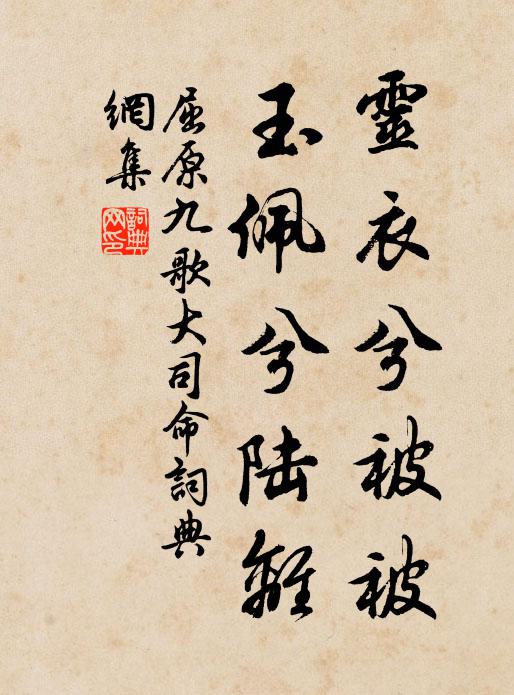 靈衣兮被被
玉佩兮陆離
屈原九歌大司命詞典
網集
詞典
网印